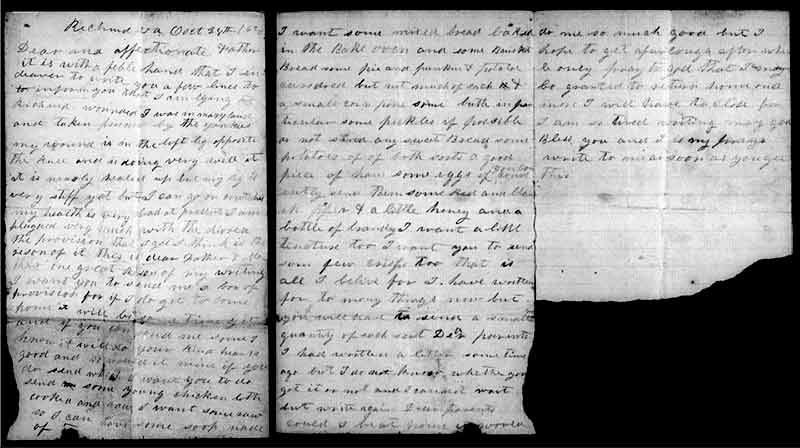 Richmd Va Oct 29th
Dear and affectionate Father
it is with a feble hand that I
deaver to write you a few lines to
to inform you that I am lying in
Richmd wounded I was in maryland
and taken prisoner by the yankies
my wound is in the left leg opposite
the knee and is doing very well it
it is nearly healed up but my leg is
very stiff yet but I can go on crutches
my health is very bad at present I am
plagued very much with the
the provision that I get I think is the
reson of it this is dear Father &
one great of my writing
I want you to send me a box of
provision for if I do get to come
home it will be some time yet
and if you can send me some I
know it will do your kind hearts
good and
do send what I want you to do
send some young chicken both
cooked and I want some
so I can have some soop made
I want some mixed bread baked
in the Bake oven and some
Bread some pie and punkin & potatoe
custard but not much of each &
a small corn pone some both in
ticular some pickles if possible
do not send any sweet Bread some
potatoes of of both sorts a good
piece of ham some eggs if
send them some Red and
& a little honey and a
bottle of brandy I want a litt
tincture too I want you to send
som few too that is
all I believe for I have written
for to many things now but
you will have to send a small
quantity of each sort Dear parents
I had written a letter some time
ago but I do not know whether you
got it or not and I cannot wait
but write again Dear parents
could I be at home it would
do me so much good but I
hope to get a after
be only pray to god that I may
be granted to return home
more I will have to close for
I am so tired writing may god
Bless you and is my prayer
write to me as soon as you get
this